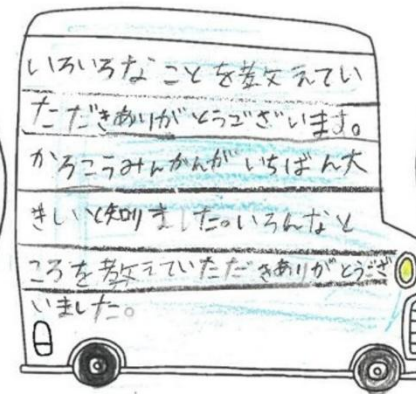 いろいろなことを教えてい
ただきありがとうございます。
かろこうみんかんがいちばん大
きいと知りました。いろんなと
ころを教えていただきありがとうござ
いました。